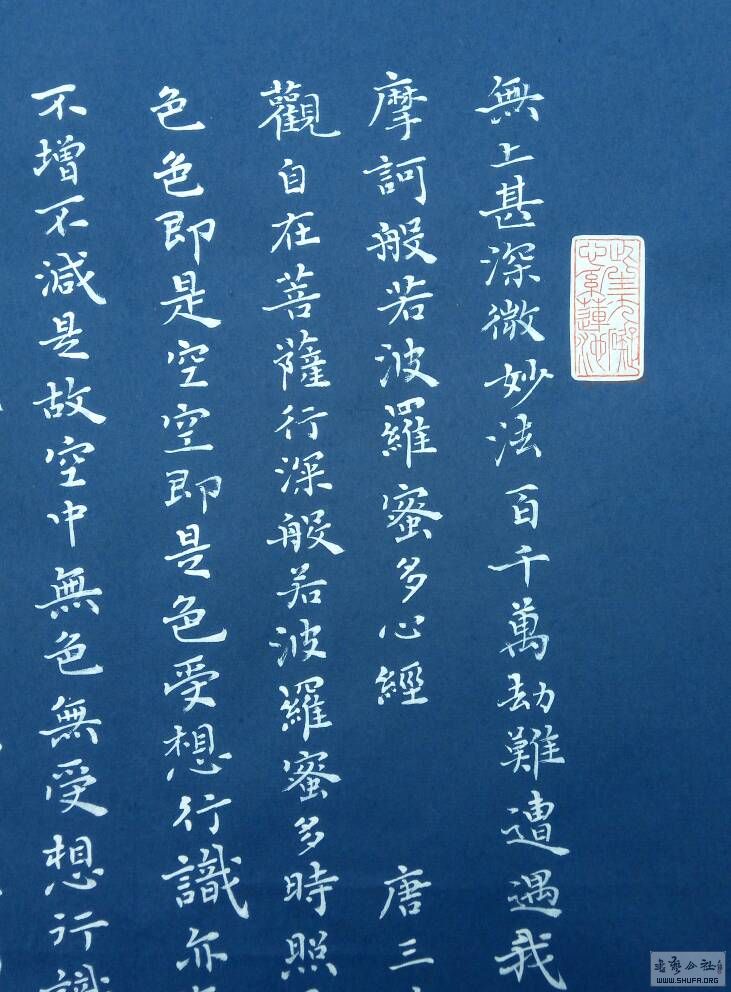 無上甚深微妙法百千萬劫難遭遇我
摩訶般若波羅蜜多心經 唐三
觀自在菩薩行深般若波羅蜜多時照
色色即是空空即是色受想行識亦
不增不減是故空中無色無受想行識
WWW.SHUFA.ORG